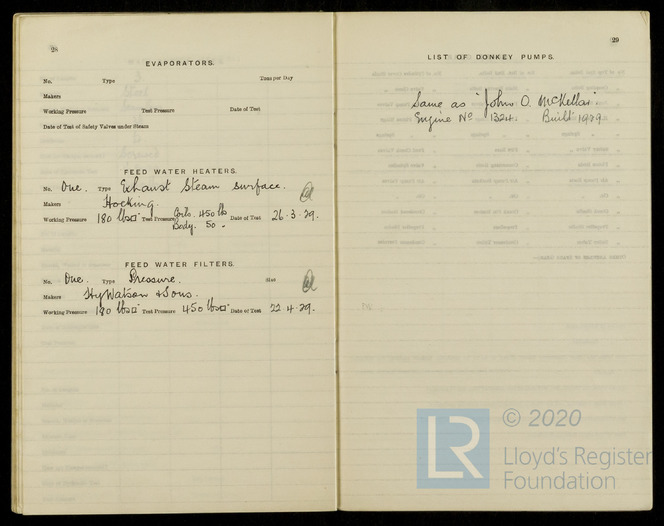 28
EVAPORATORS.
No. Type Tons per Day
Makers
Working Pressure Test Pressure Date of Test
Date of Test of Safety Valves under Steam
FEED WATER HEATERS.
No. One. Type Exhaust Steam Surface.
Makers Hocking.
Working Pressure 180 lbs□" Test Pressure Coils. 450 lb Date of Test 26.3.29.
Body. 50 "
FEED WATER FILTERS.
No. One. Type Pressure. Size
Makers Hy Watson & Sons.
Working Pressure 180 lbs□" Test Pressure 450 lbs□" Date of Test 22.4.29.
29
LIST OF DONKEY PUMPS.
Same as "John O. McKellar"
Engine No 1324. Built 1929.
LR
© 2020
Lloyd's Register
Foundation